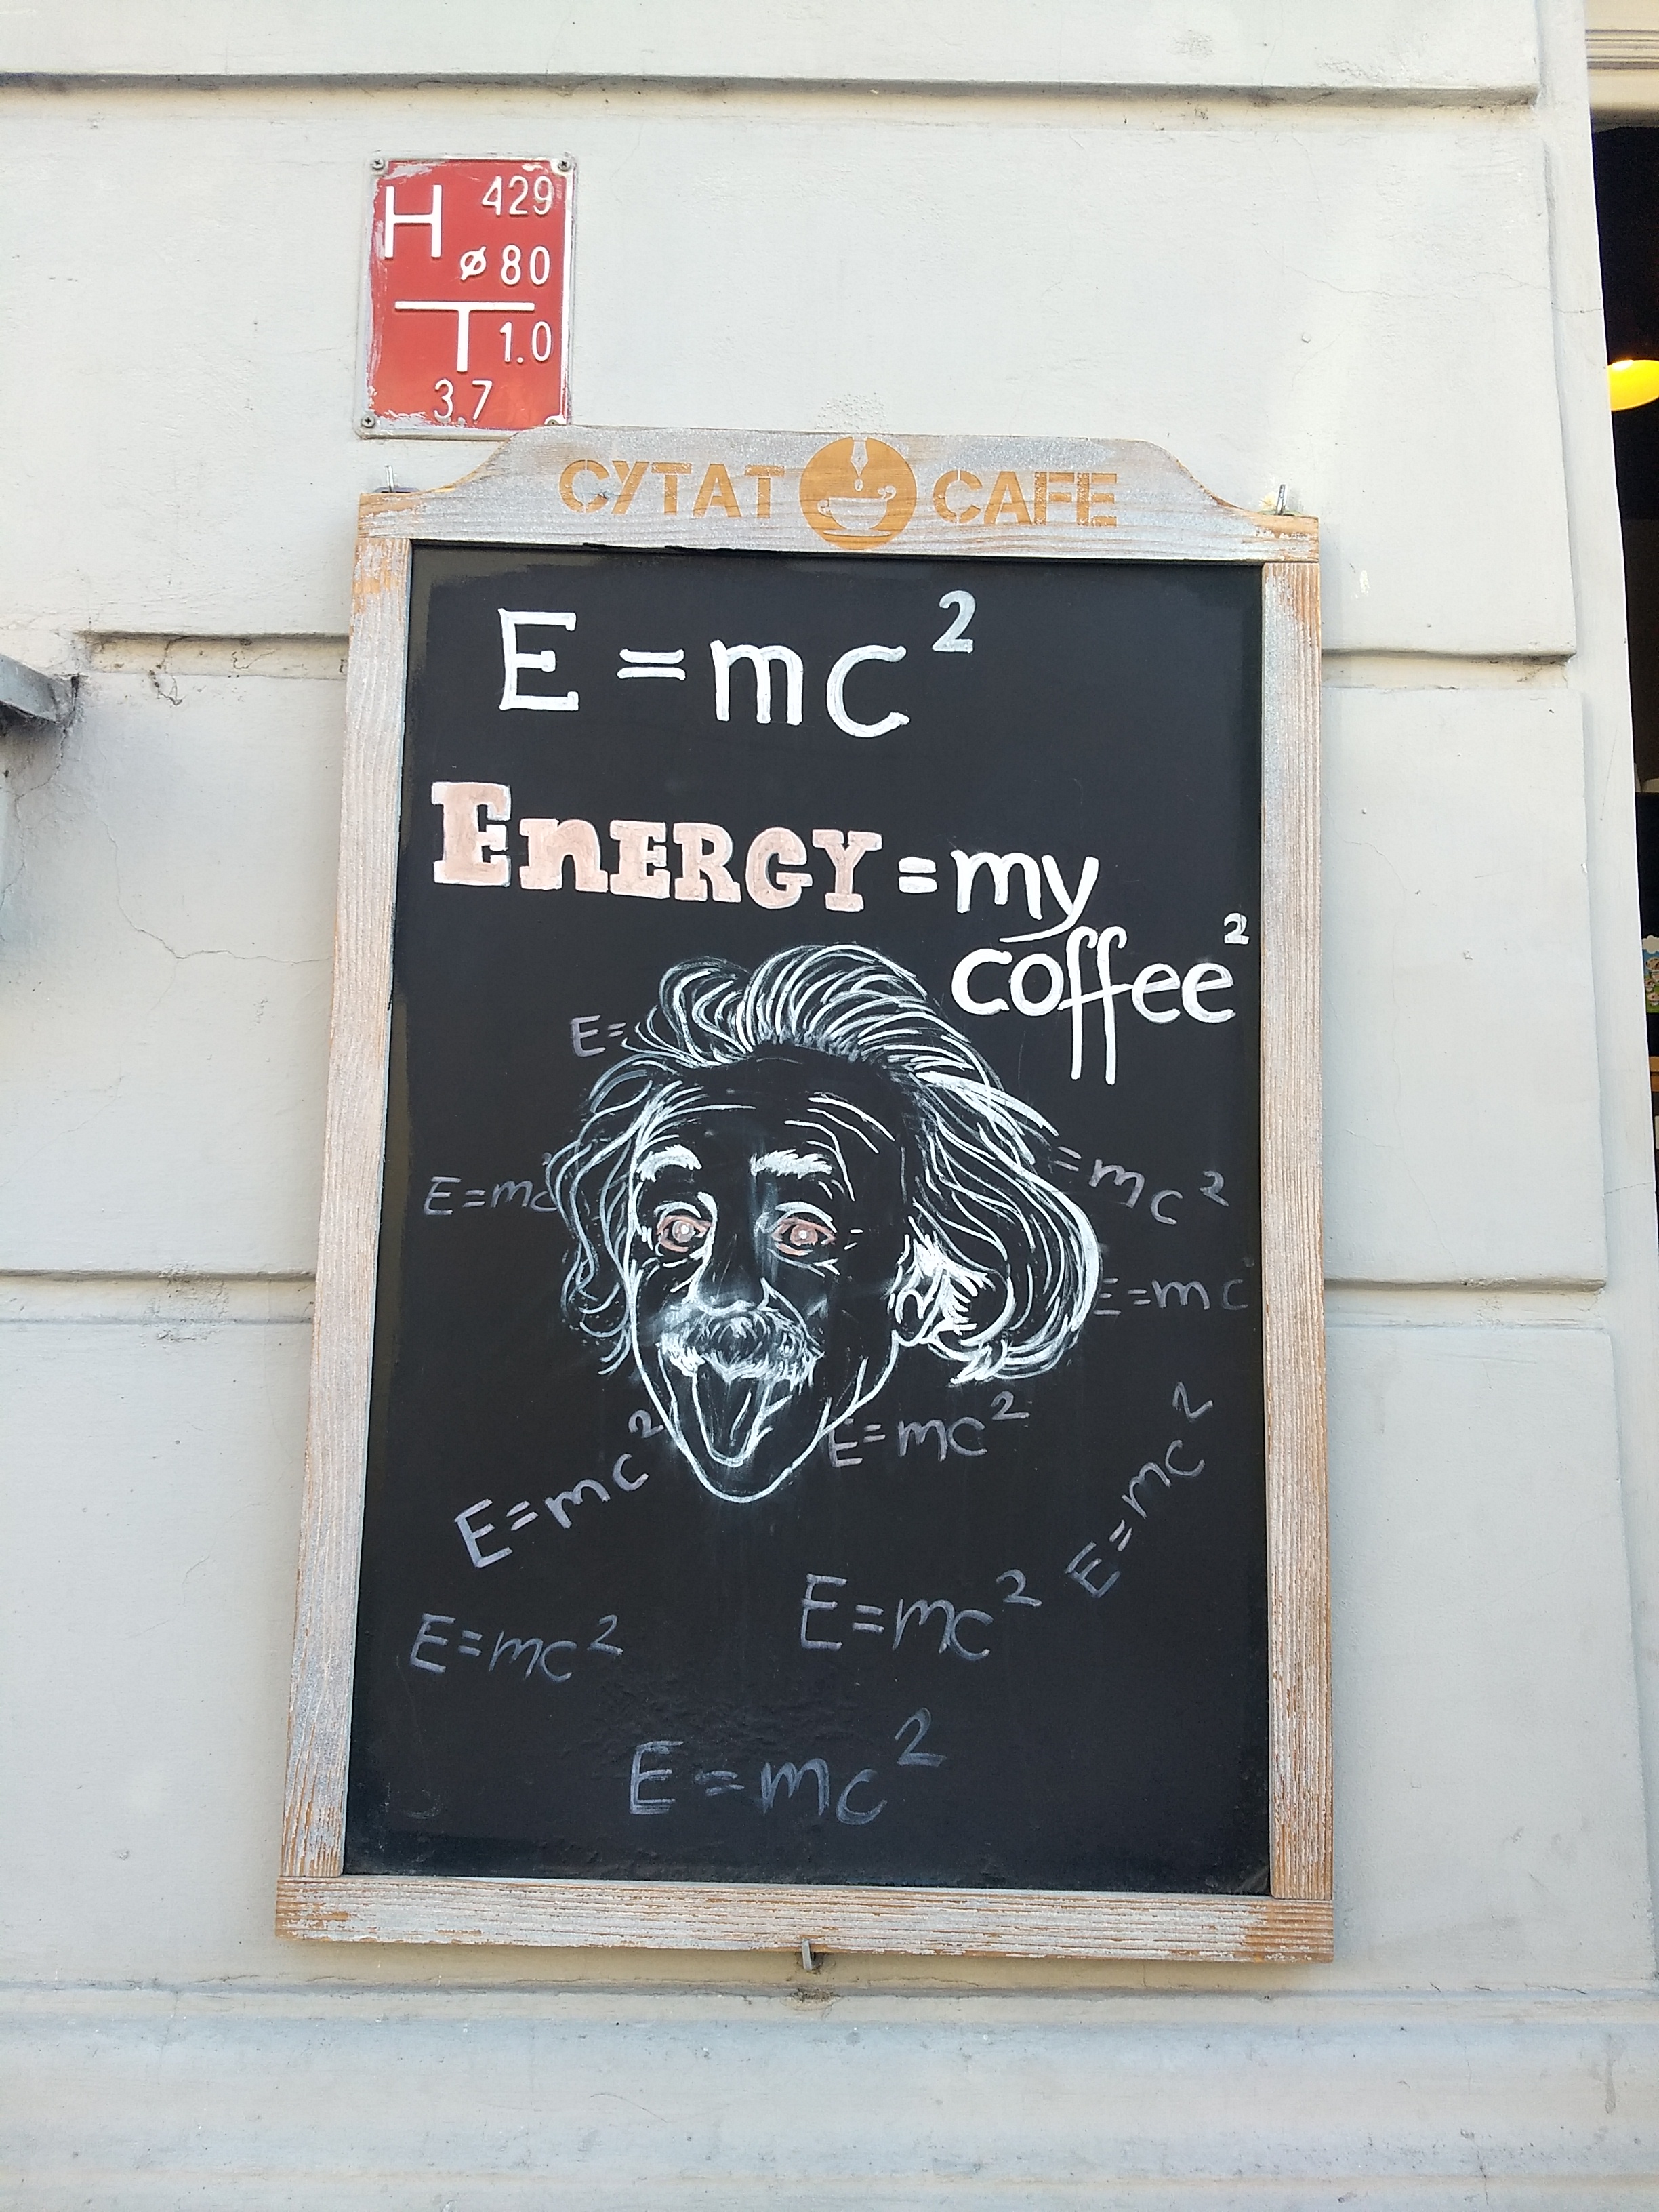 H 429
ø 80
T 1.0
3.7
CYTAT CAFE
E = mc²
ENERGY = my
coffee²
E=
E=mc²
=mc²
E=mc²
E=mc²
E=mc²
E=mc²
E=mc²
E=mc²
E=mc²